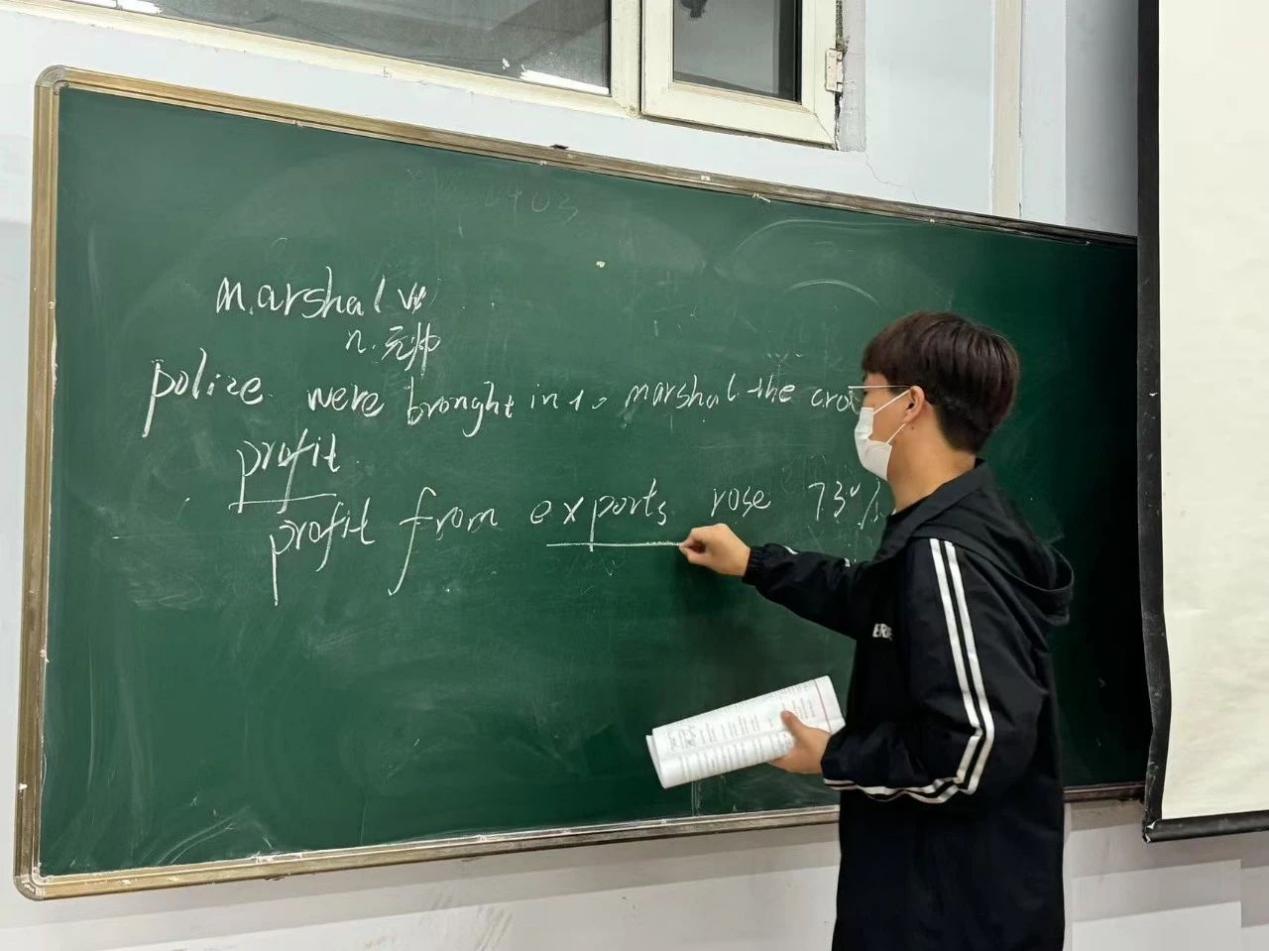 marshal vt
n. 元帅
police were brought in to marshal the cro
profit
profit from exports rose 73%
ER